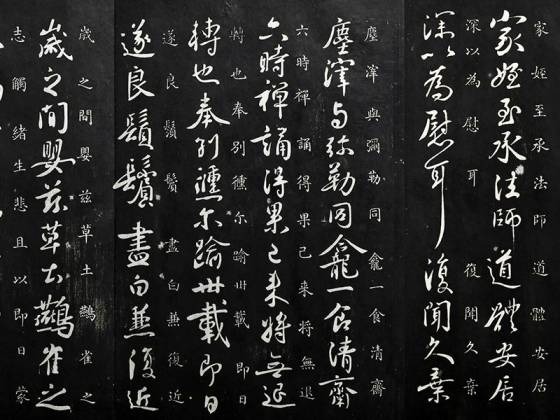 家姪至承法師道體安居
家姪至承法師道體安居
深以為慰耳 復聞久棄
深以為慰耳復聞久棄
塵滓與彌勒同龕一食清齋
塵滓与弥勒同龕一食清齋
六時禪誦得果已來將無退
六時禅誦得果已来將無退
轉也奉別尔踰卅載即日
轉也奉別尔踰卅載即日
遂良鬚鬢盡白兼復近
遂良鬚鬢盡白兼復近
歲之間嬰茲草土雀之
歲之間嬰茲草土雀之
志觸緒生悲且以即日蒙